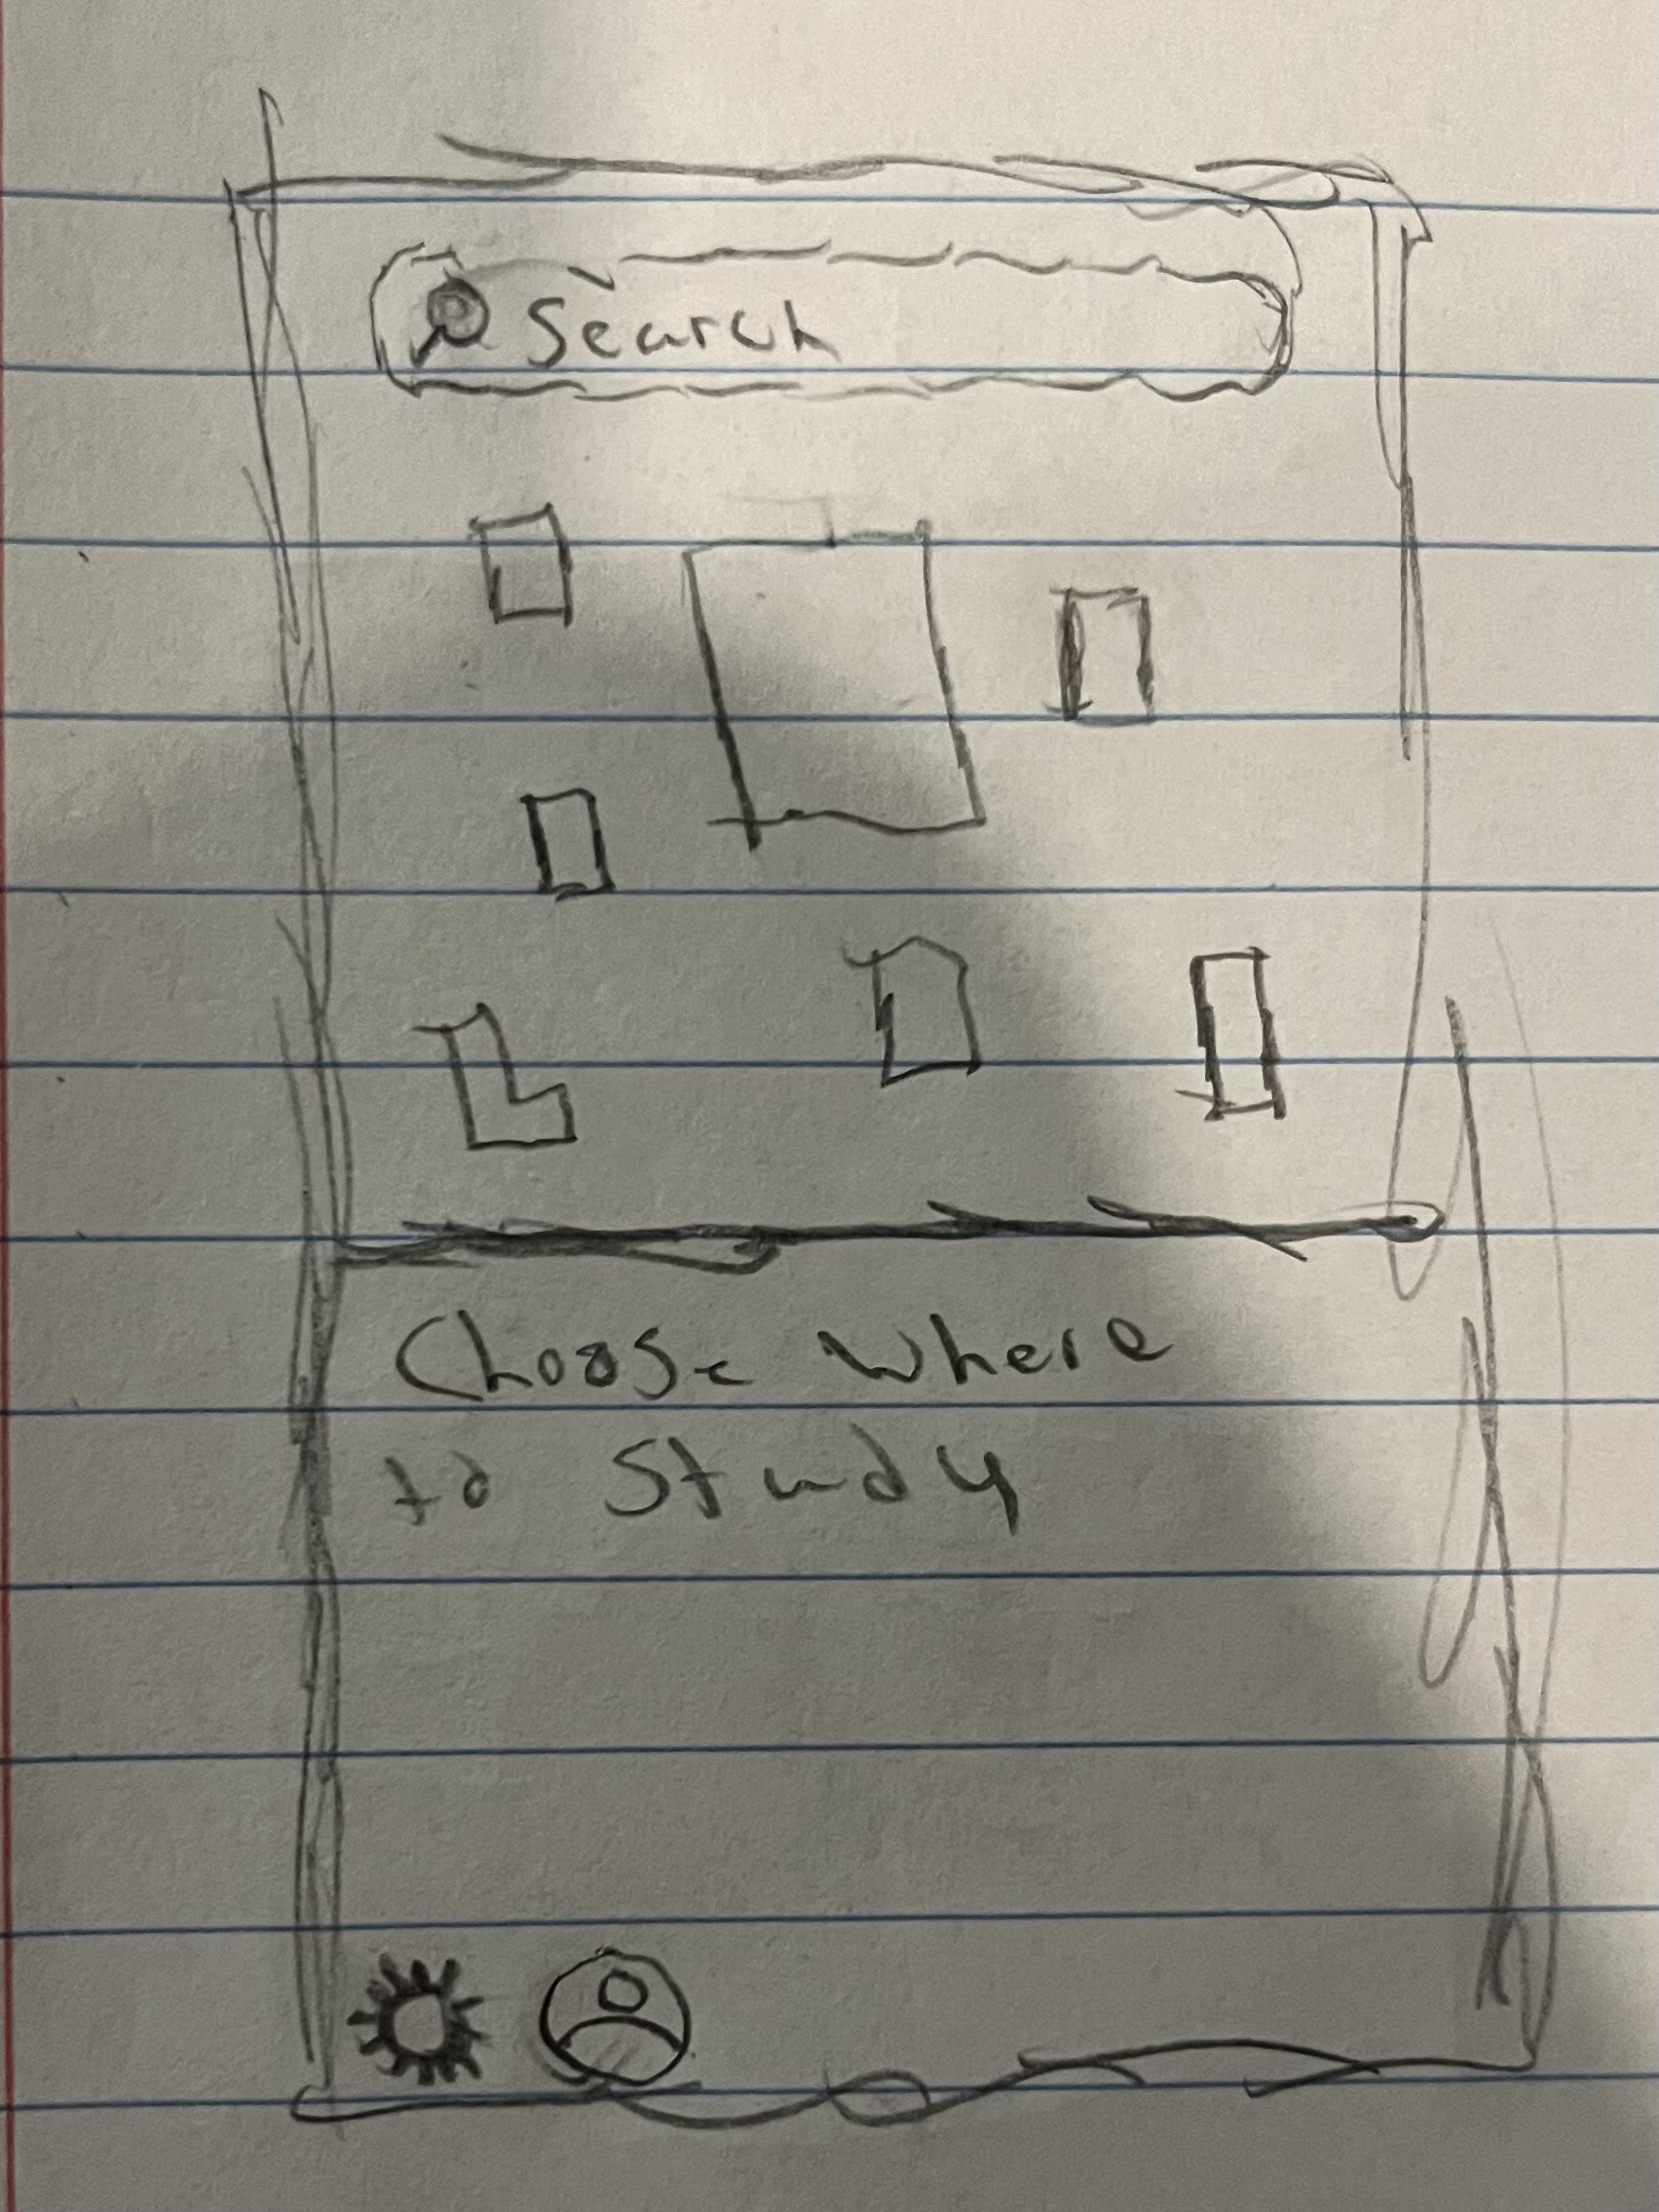 Search
Choose where
to Study